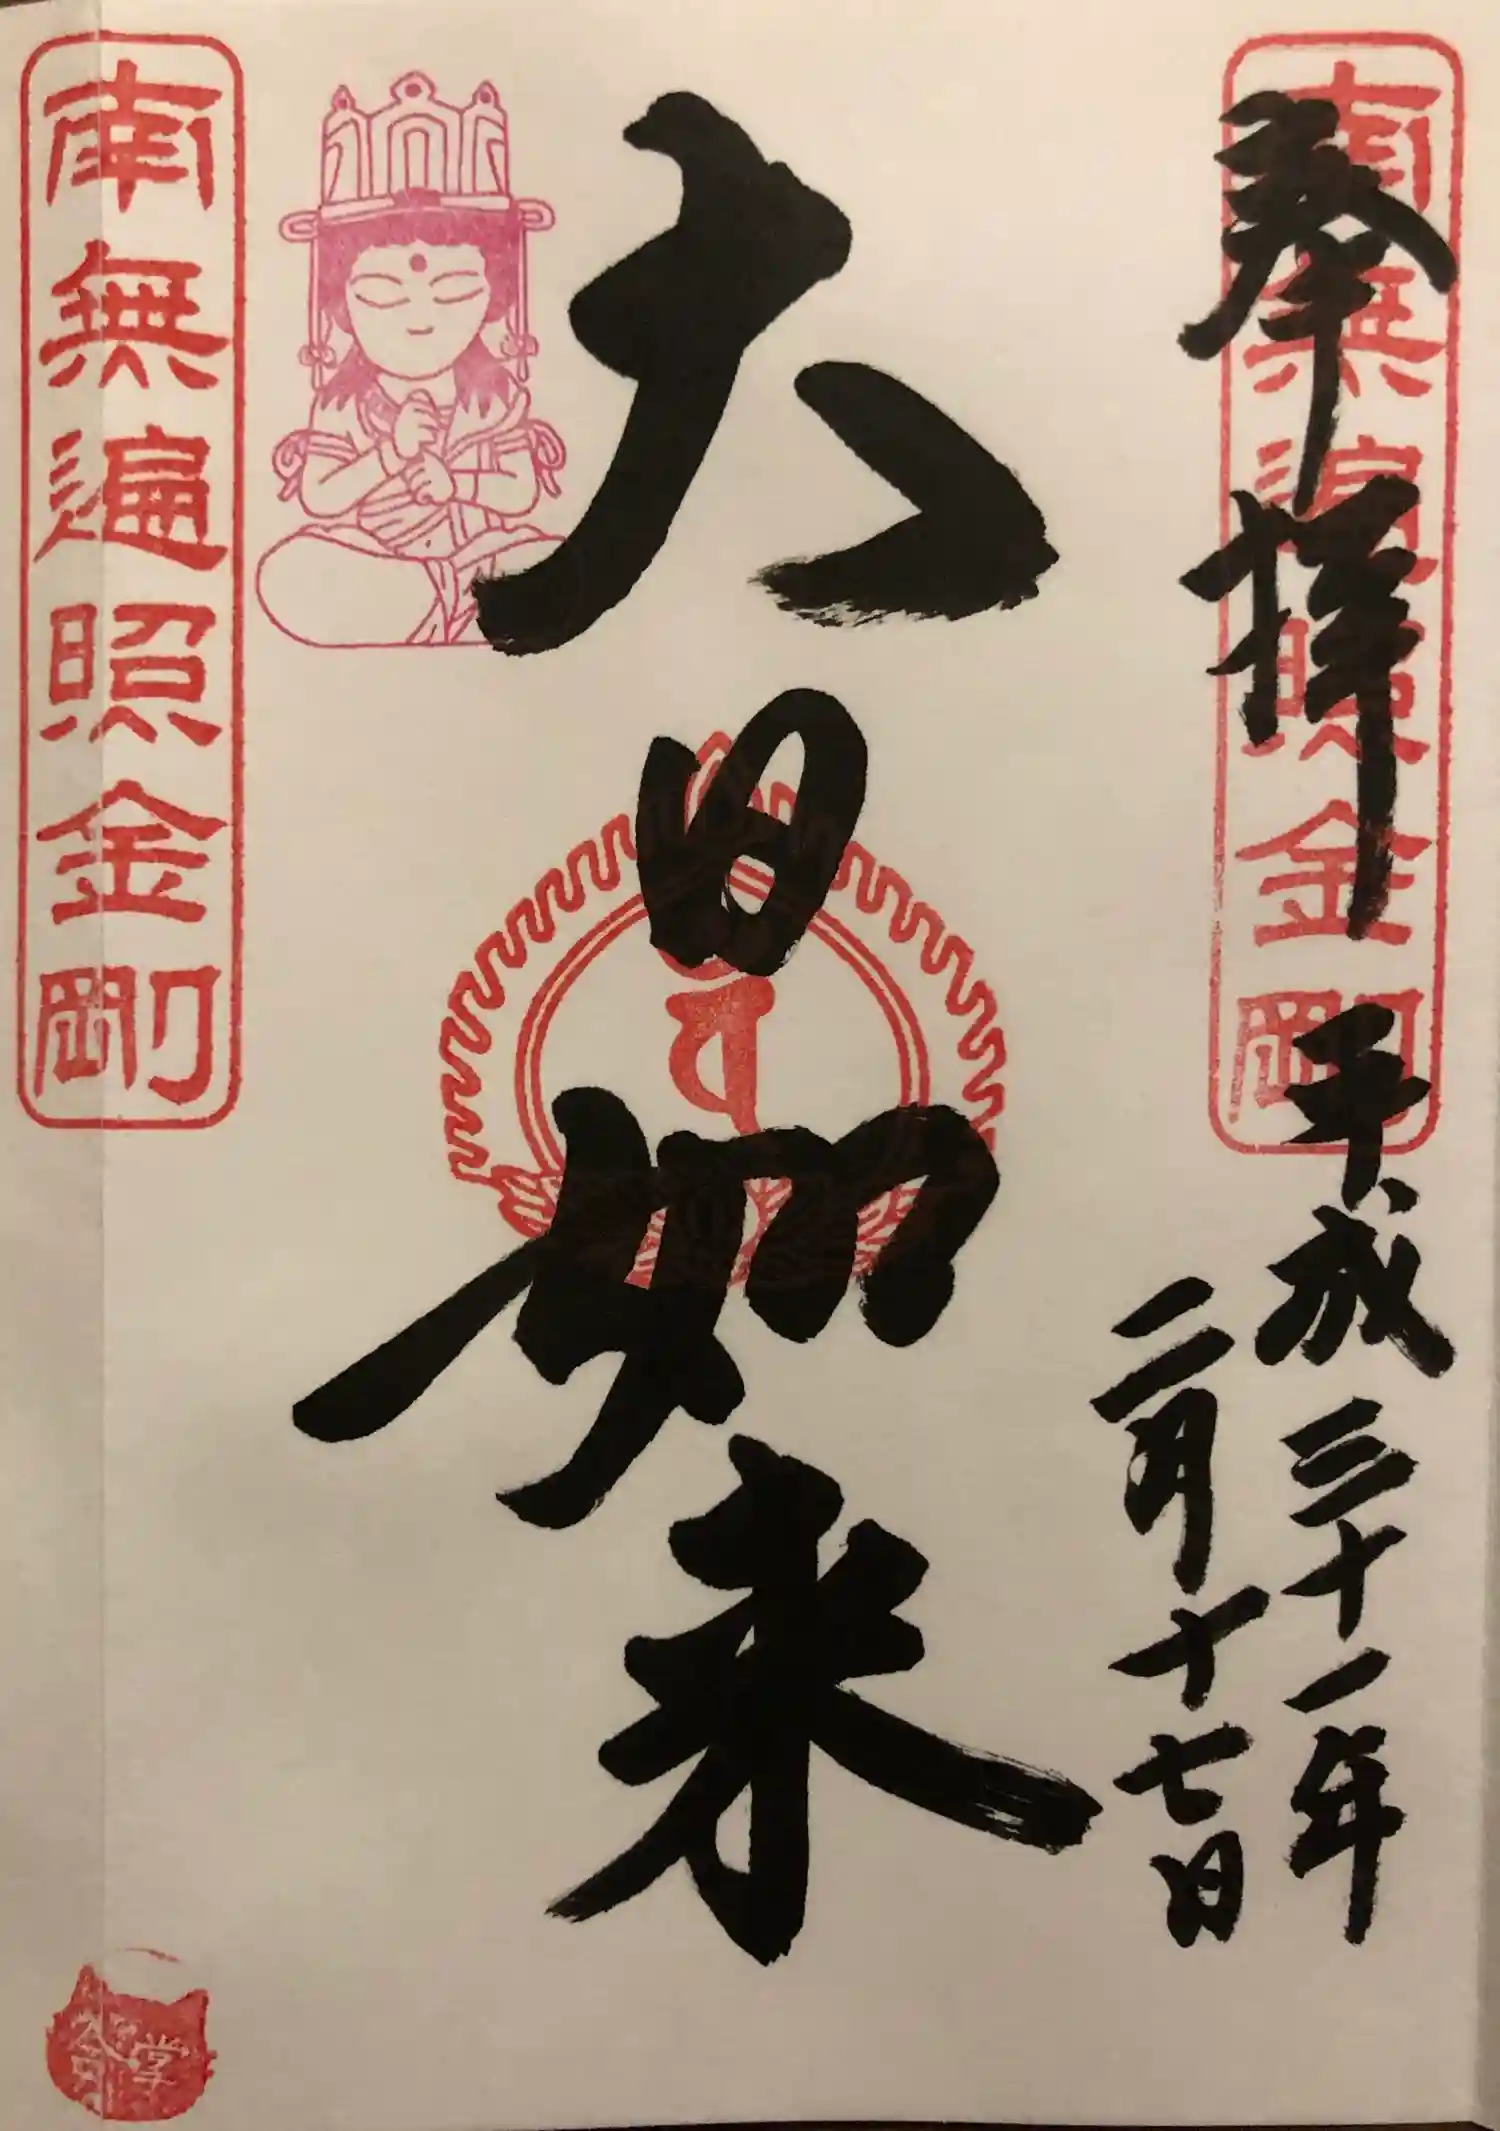 奉拝
平成三十一年
二月十七日
大日如来
南無遍照金剛
南無遍照金剛